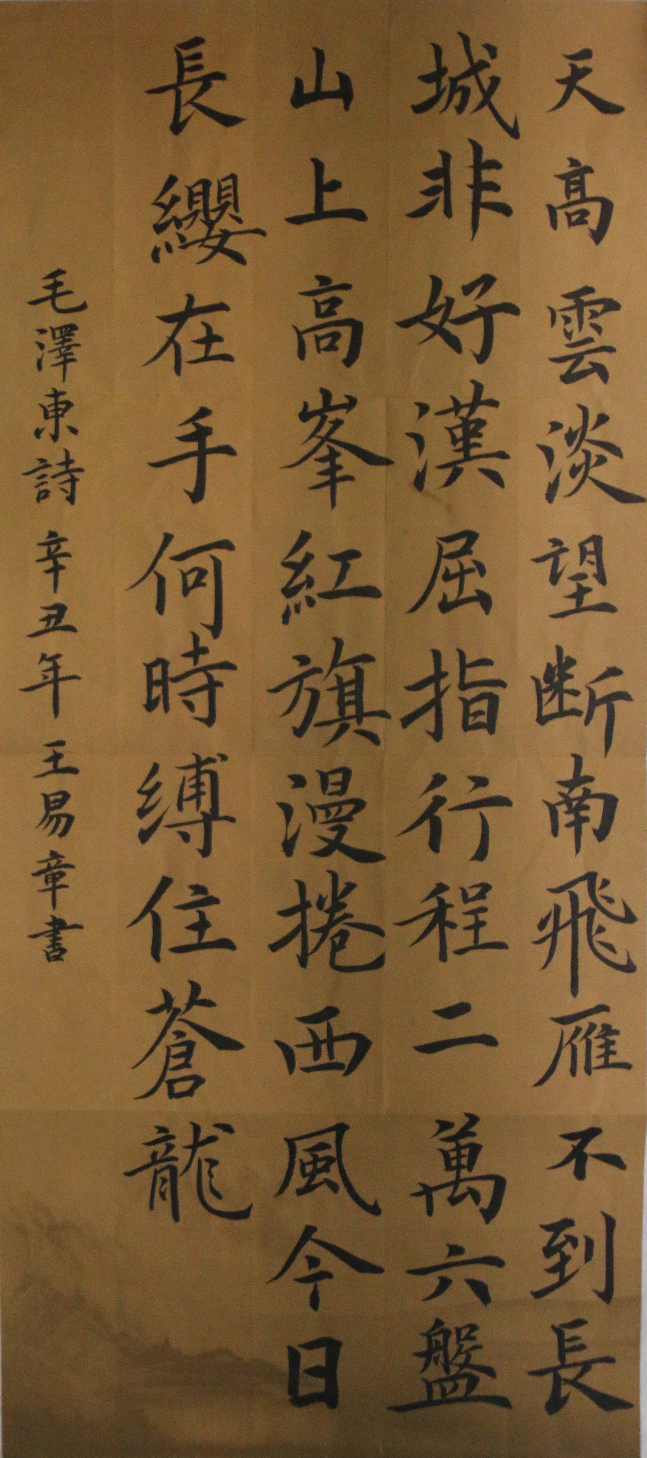 天髙雲淡望断南飛雁不到長
城非好漢屈指行程二萬六盤
山上高峯紅旗漫捲西風今日
長纓在手何時縛住蒼龍
毛澤東詩辛丑年王易章書